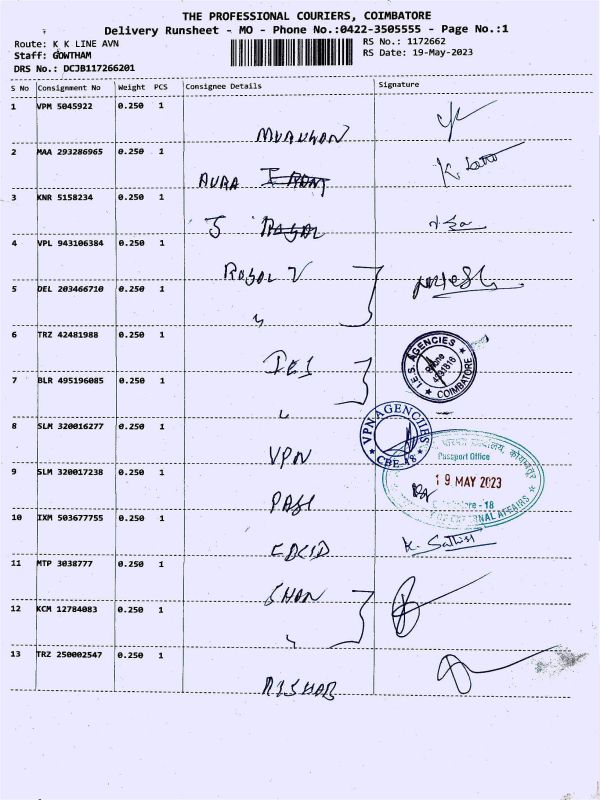 THE PROFESSIONAL COURIERS, COIMBATORE
Delivery Runsheet - MO - Phone No.:0422-3505555 - Page No.:1
Route: K K LINE AVN
RS No.: 1172662
Staff: GOWTHAM
RS Date: 19-May-2023
DRS No.: DCJB117266201
S No Consignment No Weight PCS Consignee Details Signature
1 VPM 5045922 0.250 1
MURUGAN
2 MAA 293286965 0.250 1
AURA
K.
3 KNR 5158234 0.250 1
J
4 VPL 943106384 0.250 1
RAJAL V
5 DEL 203466710 0.250 1
"
6 TRZ 42481988 0.250 1
IES
I.E.S. AGENCIES
Phone
4391816
COIMBATORE
7 BLR 495196085 0.250 1
"
8 SLM 320016277 0.250 1
VPN
VPN AGENCIES
CBE-18
9 SLM 320017238 0.250 1
PASS
Passport Office
19 MAY 2023
Coimbatore - 18
OF EXTERNAL AFFAIRS
10 IXM 503677755 0.250 1
K. Sathish
11 MTP 3038777 0.250 1
12 KCM 12784083 0.250 1
"
13 TRZ 250002547 0.250 1
RISHAB